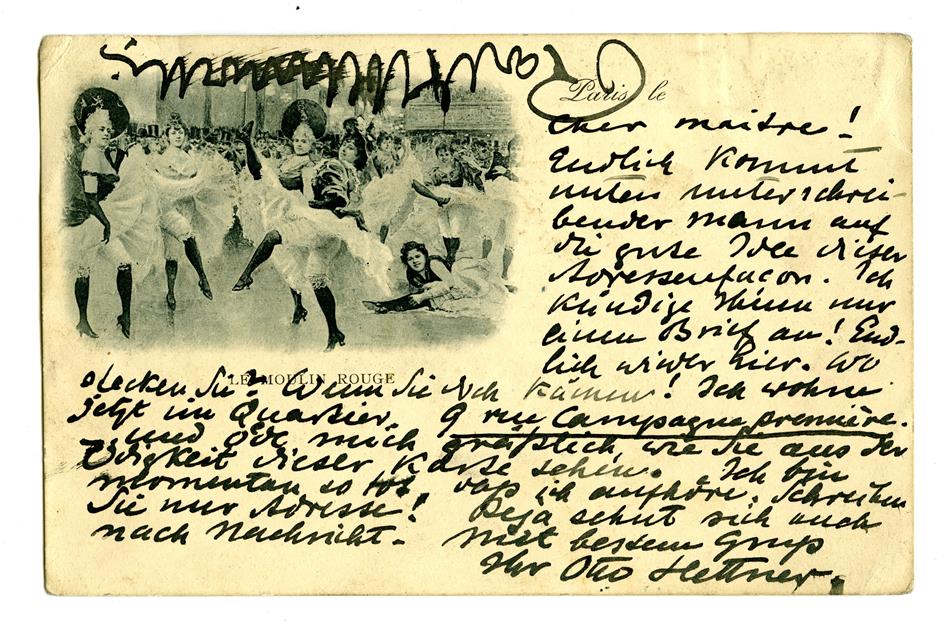 Paris, le
cher maître!
Endlich kommt
unten unterschrei-
bender Mann auf
die gute Idee dieser
Adressenfacon. Ich
kündige Ihnen nur
einen Brief an! End-
lich wieder hier. Wo
LE MOULIN ROUGE
stecken Sie? Wenn Sie doch kämen! Ich wohne
jetzt im Quartier, 9 rue Campagne première.
und öde mich gräßlich wie Sie aus der
Ödigkeit dieser Karte sehen. Ich bin
momentan so tot daß ich aufhöre. Schreiben
Sie nur Adresse! sehnt sich auch
nach Nachricht. Mit bestem Gruß
Ihr Otto Hettner.